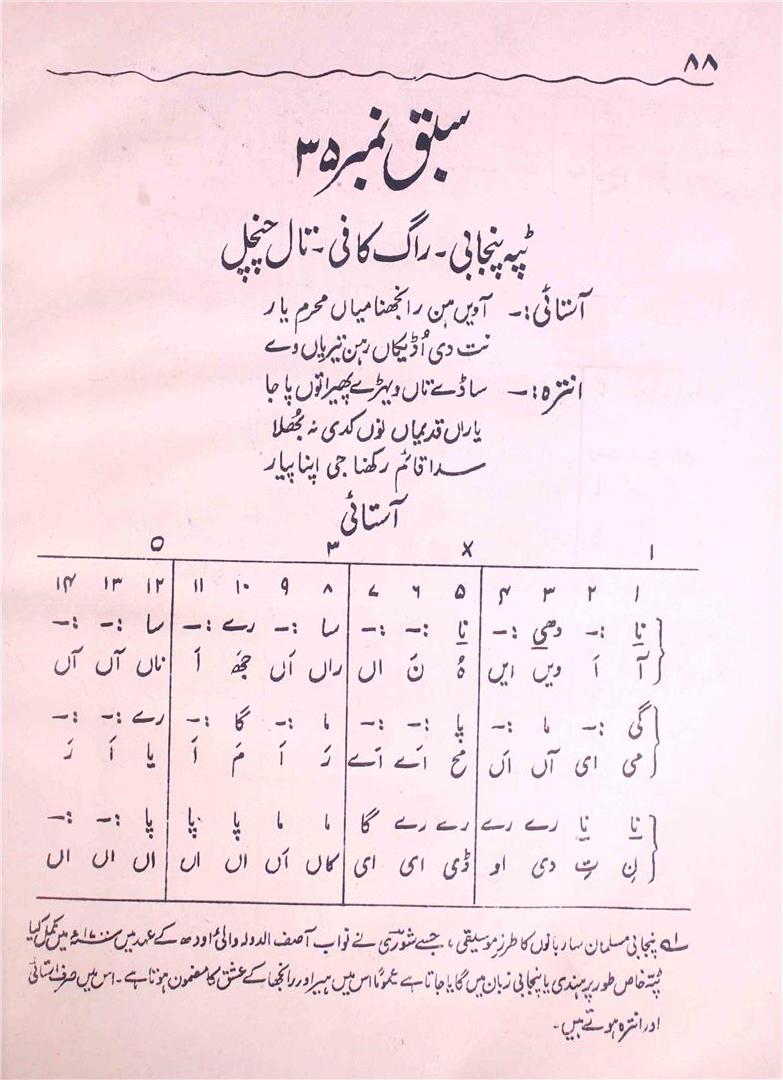 ۸۸
سبق نمبر ۳۵
ٹپہ پنجابی۔ راگ کافی۔ تال چنچل
آستائی:۔ آویں ہن رانجھنا میاں محرم یار
نت دی اُڈیکاں رہن تیریاں وے
انترہ:۔ ساڈے تاں ویہڑے پھیرا توں پا جا
یاراں قدیماں نوں کدی نہ بھُلا
سدا قائم رکھنا جی اپنا پیار
آستائی
۱ X ۳ ۵
۱ ۲ ۳ ۴ ۵ ۶ ۷ ۸ ۹ ۱۰ ۱۱ ۱۲ ۱۳ ۱۴
نا :- دھی :- نا :- :- سا :- رے :- سا :- :-
آ اَ ویں ایں ہُ نَ اں راں آں جھَ اَ ناں آں آں
گی :- ما :- پا :- :- ما :- گا :- رے :- :-
می ای آں آں مح اَے اَے رَ اَ مَ اَ یا اَ رَ
نا نا رے رے رے رے گا ما ما پا پا پا :- :-
نِ تِ دی او ڈی ای ای کاں آں اں اں اں اں اں
؎۱ پنجابی مسلمان ساربانوں کا طرزِ موسیقی، جسے شوری نے نواب آصف الدولہ والئ اودھ کے عہد میں ۱۷۰۰ء میں مکمل کیا
ٹپّہ خاص طور پر ہندی یا پنجابی زبان میں گایا جاتا ہے عموماً اس میں ہیر اور رانجھا کے عشق کا مضمون ہوتا ہے۔ اس میں صرف استائی
اور انترہ ہوتے ہیں۔